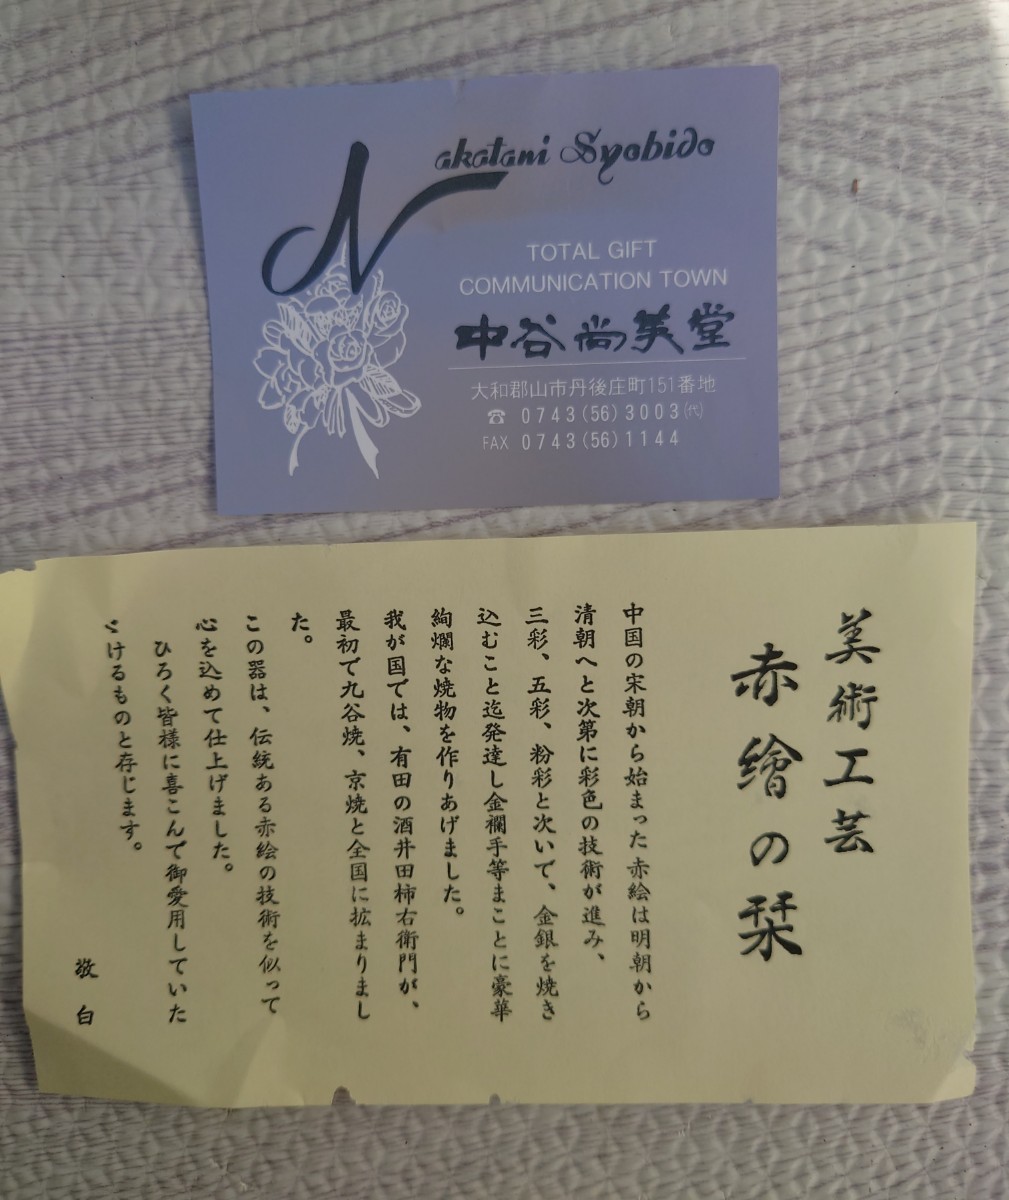 Nakatani Syobido
TOTAL GIFT
COMMUNICATION TOWN
中谷尚美堂
大和郡山市丹後庄町151番地
☎ 0743(56)3003(代)
FAX 0743(56)1144
美術工芸
赤繪の栞
中国の宋朝から始まった赤絵は明朝から
清朝へと次第に彩色の技術が進み、
三彩、五彩、粉彩と次いで、金銀を焼き
込むこと迄発達し金襴手等まことに豪華
絢爛な焼物を作りあげました。
我が国では、有田の酒井田柿右衛門が、
最初で九谷焼、京焼と全国に拡まりまし
た。
この器は、伝統ある赤絵の技術を似って
心を込めて仕上げました。
ひろく皆様に喜こんで御愛用していた
ゞけるものと存じます。
敬白